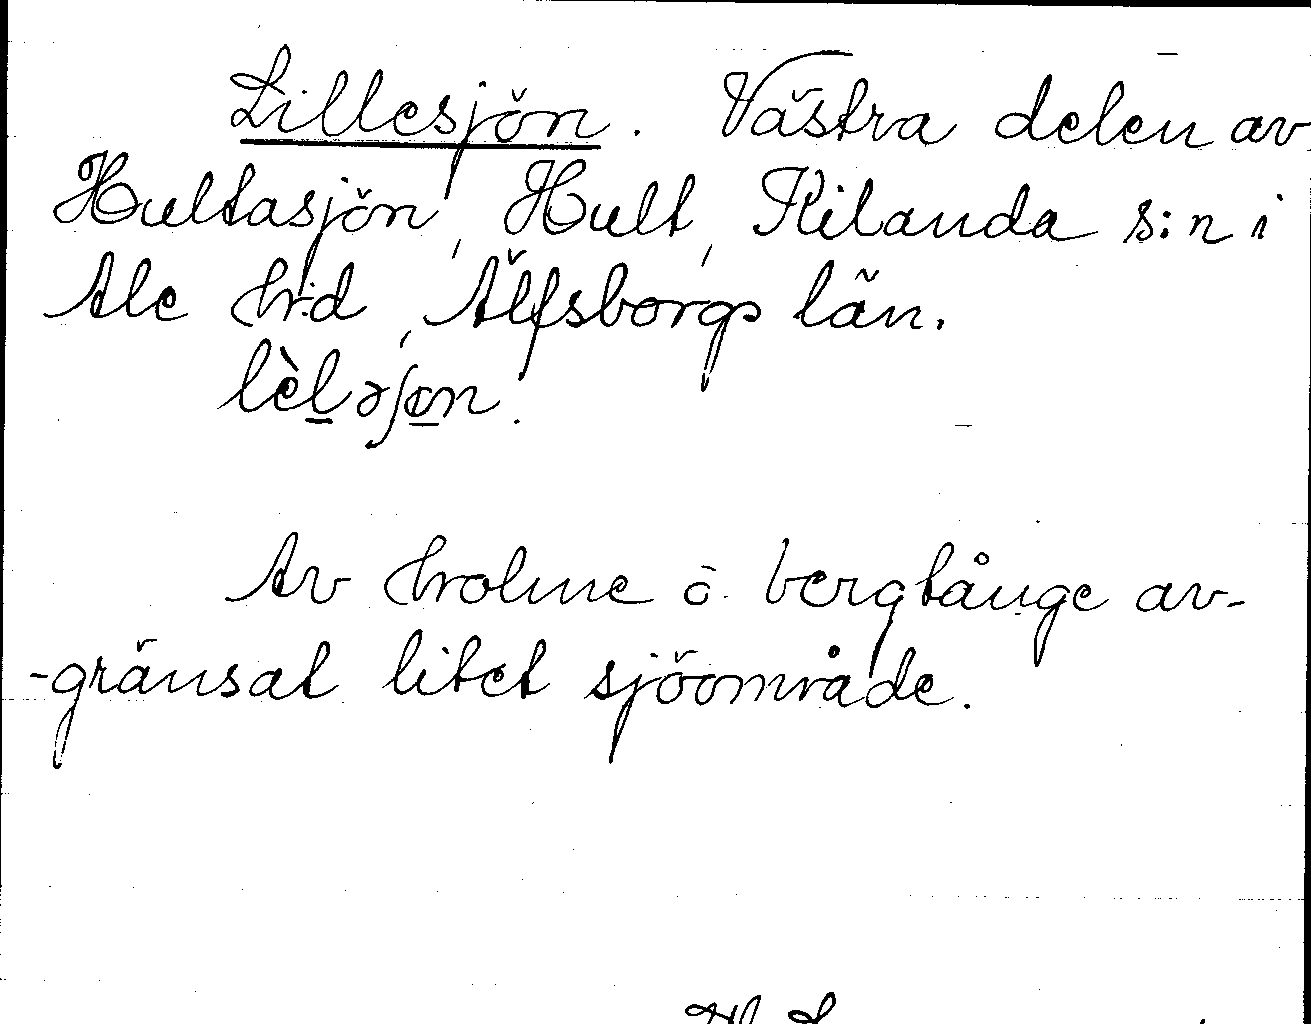 Lillesjön. Västra delen av
Hultasjön, Hult, Kilanda s:n i
Ale hrd, Älfsborgs län.
lèləʃɵn.
Av holme o bergtånge av-
-gränsat litet sjöområde.